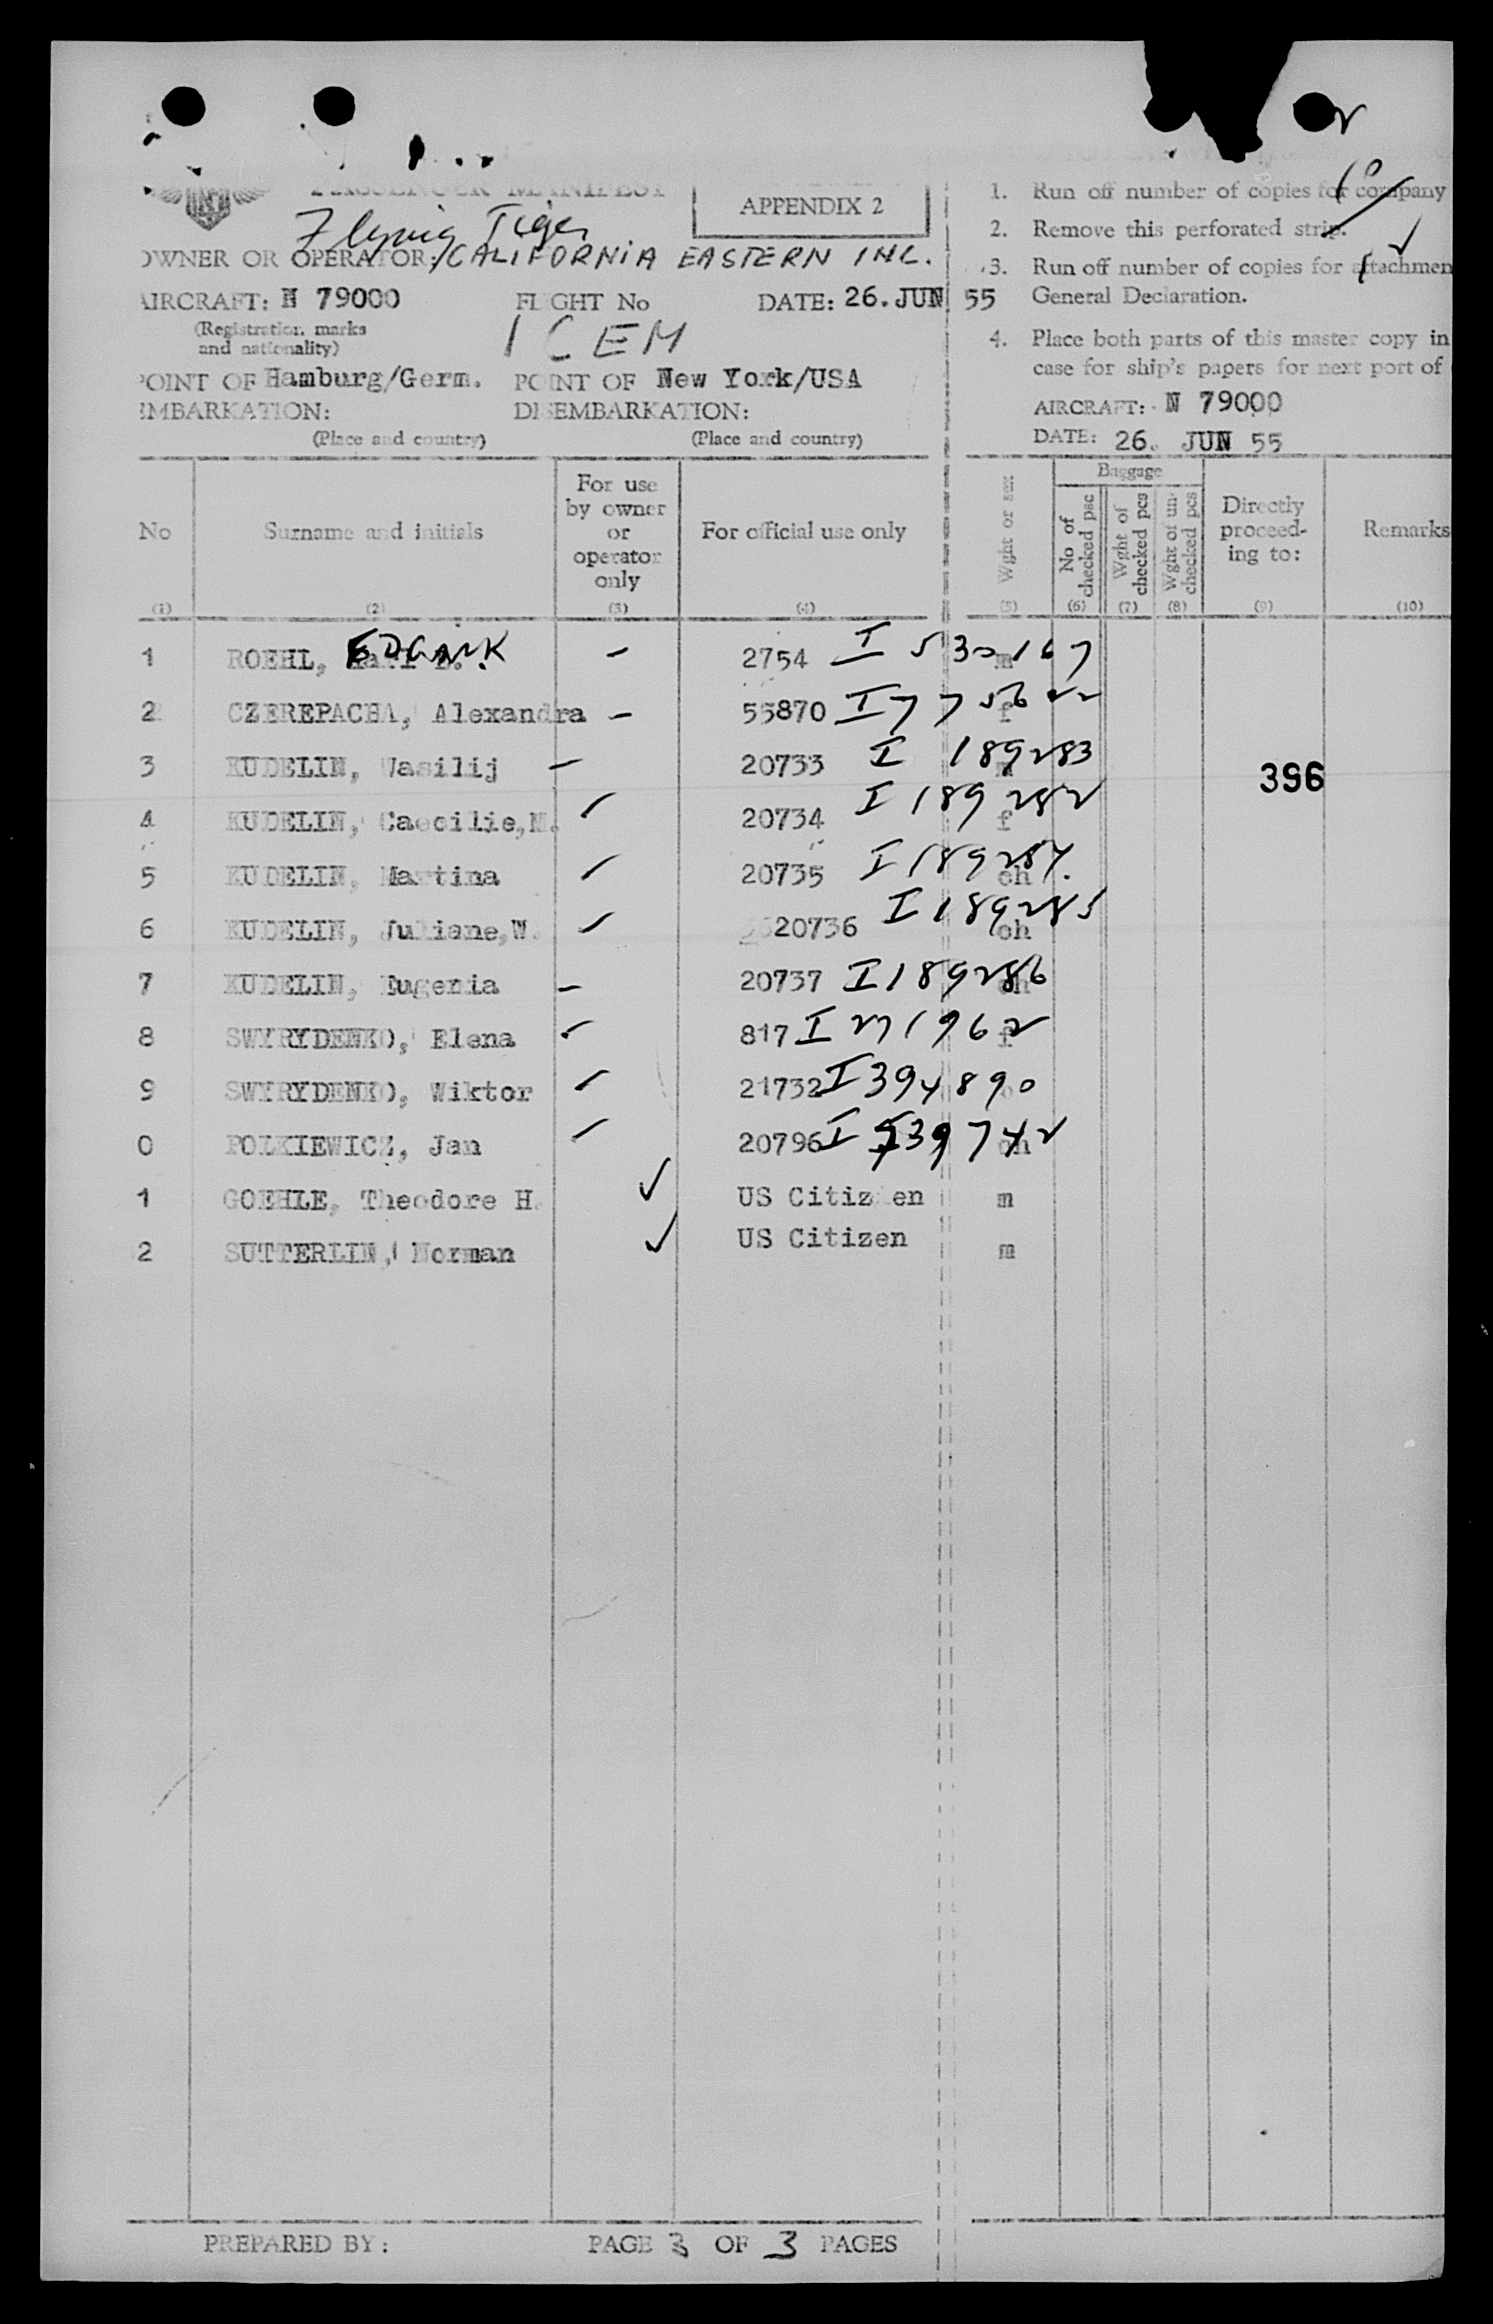 PASSENGER MANIFEST
APPENDIX 2
Flying Tiger
OWNER OR OPERATOR: /CALIFORNIA EASTERN INC.
AIRCRAFT: N 79000 FLIGHT No DATE: 26. JUN 55
(Registration marks
and nationality)
ICEM
POINT OF Hamburg/Germ. POINT OF New York/USA
EMBARKATION: DISEMBARKATION:
(Place and country) (Place and country)
10
1. Run off number of copies for company
2. Remove this perforated strip.
3. Run off number of copies for attachmen
General Declaration.
4. Place both parts of this master copy in
case for ship's papers for next port of
AIRCRAFT: N 79000
DATE: 26. JUN 55
No Surname and initials For use by owner or operator only For official use only Wght or sex Baggage No of checked psc Wght of checked pcs Wght of un-checked pcs Directly proceed-ing to: Remarks
(1) (2) (3) (4) (5) (6) (7) (8) (9) (10)
1 ROEHL, EDGAR K - 2754 I 530167 m
2 CZEREPACHA, Alexandra - 55870 I 775622 f
3 KUDELIN, Wasilij - 20733 I 189283
396
4 KUDELIN, Caecilie, M. 20734 I 189282 f
5 KUDELIN, Martina 20735 I 189284. ch
6 KUDELIN, Juliane, W. 20736 I 189285 ch
7 KUDELIN, Eugenia - 20737 I 189286 ch
8 SWYRYDENKO, Elena 817 I 271962 f
9 SWYRYDENKO, Wiktor 21732 I 394890
0 POLKIEWICZ, Jan 20796 I 539742 ch
1 GOEHLE, Theodore H. ✓ US Citizen m
2 SUTTERLIN, Norman ✓ US Citizen m
PREPARED BY: PAGE 3 OF 3 PAGES